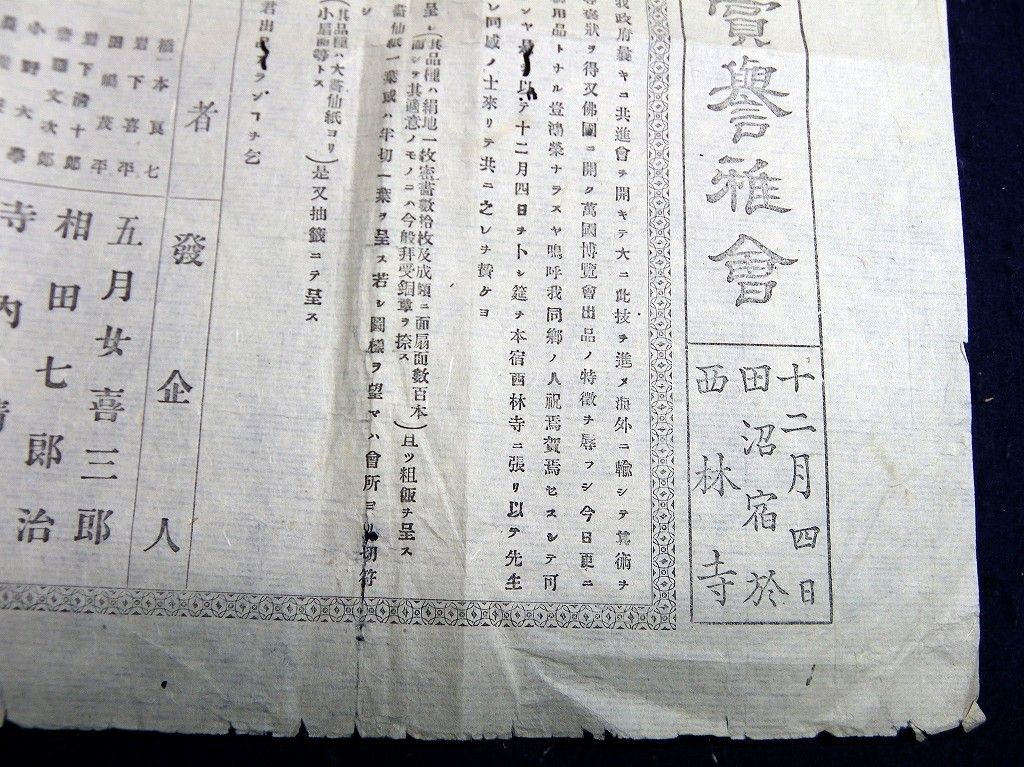 賞譽雅會
十二月四日
田沼宿於
西林寺
我政府曩キニ共進會ヲ開キテ大ニ此技ヲ進メ海外ニ輸シテ其術ヲ
褒狀ヲ得又佛國ニ開ク萬國博覽會出品ノ特徵ヲ辱フシ今日更ニ
御用品トナル豈鴻榮ナラスヤ嗚呼我同鄕ノ人祝焉賀焉セスシテ可
ンヤ是ヲ以テ十二月四日ヲトシ筵ヲ本宿西林寺ニ張リ以テ先生
ン同感ノ士來リテ共ニ之レヲ賛ケヨ
呈ス(其品種ハ絹地一枚密畵數拾枚及成額ニ面扇面數百本)且ツ粗飯ヲ呈ス
而シテ其適意ノモノニハ今般拜受銅章ヲ捺ス
畵仙紙一葉或ハ半切一葉ヲ呈ス若シ圖樣ヲ望マハ會所ヨリ切符
(其品種ハ大畵仙紙ヨリ小扇面等トス)是又抽籤ニテ呈ス
君出 ランヿヲ乞
者
橋本良七
岩下喜平
田嶋茂平
岩下淸十郞
齋藤文次郞
小野大
發企人
五月女喜三郎
相田七郎治
寺內